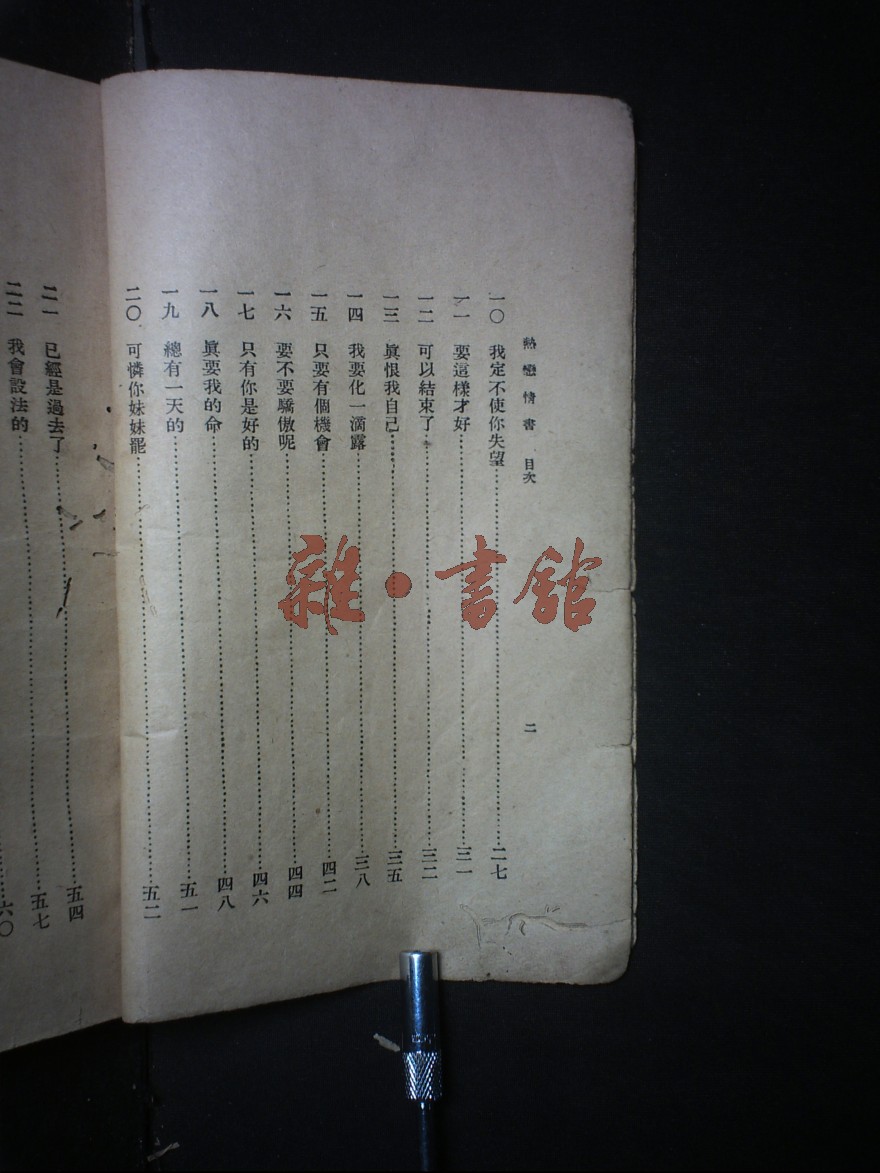 熱戀情書 目次
二
一〇 我定不使你失望 二七
一一 要這樣才好 三一
一二 可以結束了 三二
一三 眞恨我自己 三五
一四 我要化一滴露 三八
一五 只要有個機會 四二
一六 要不要驕傲呢 四四
一七 只有你是好的 四六
一八 眞要我的命 四八
一九 總有一天的 五一
二〇 可憐你妹妹罷 五二
二一 已經是過去了 五四
二二 我會設法的 五七
六〇
雜·書館